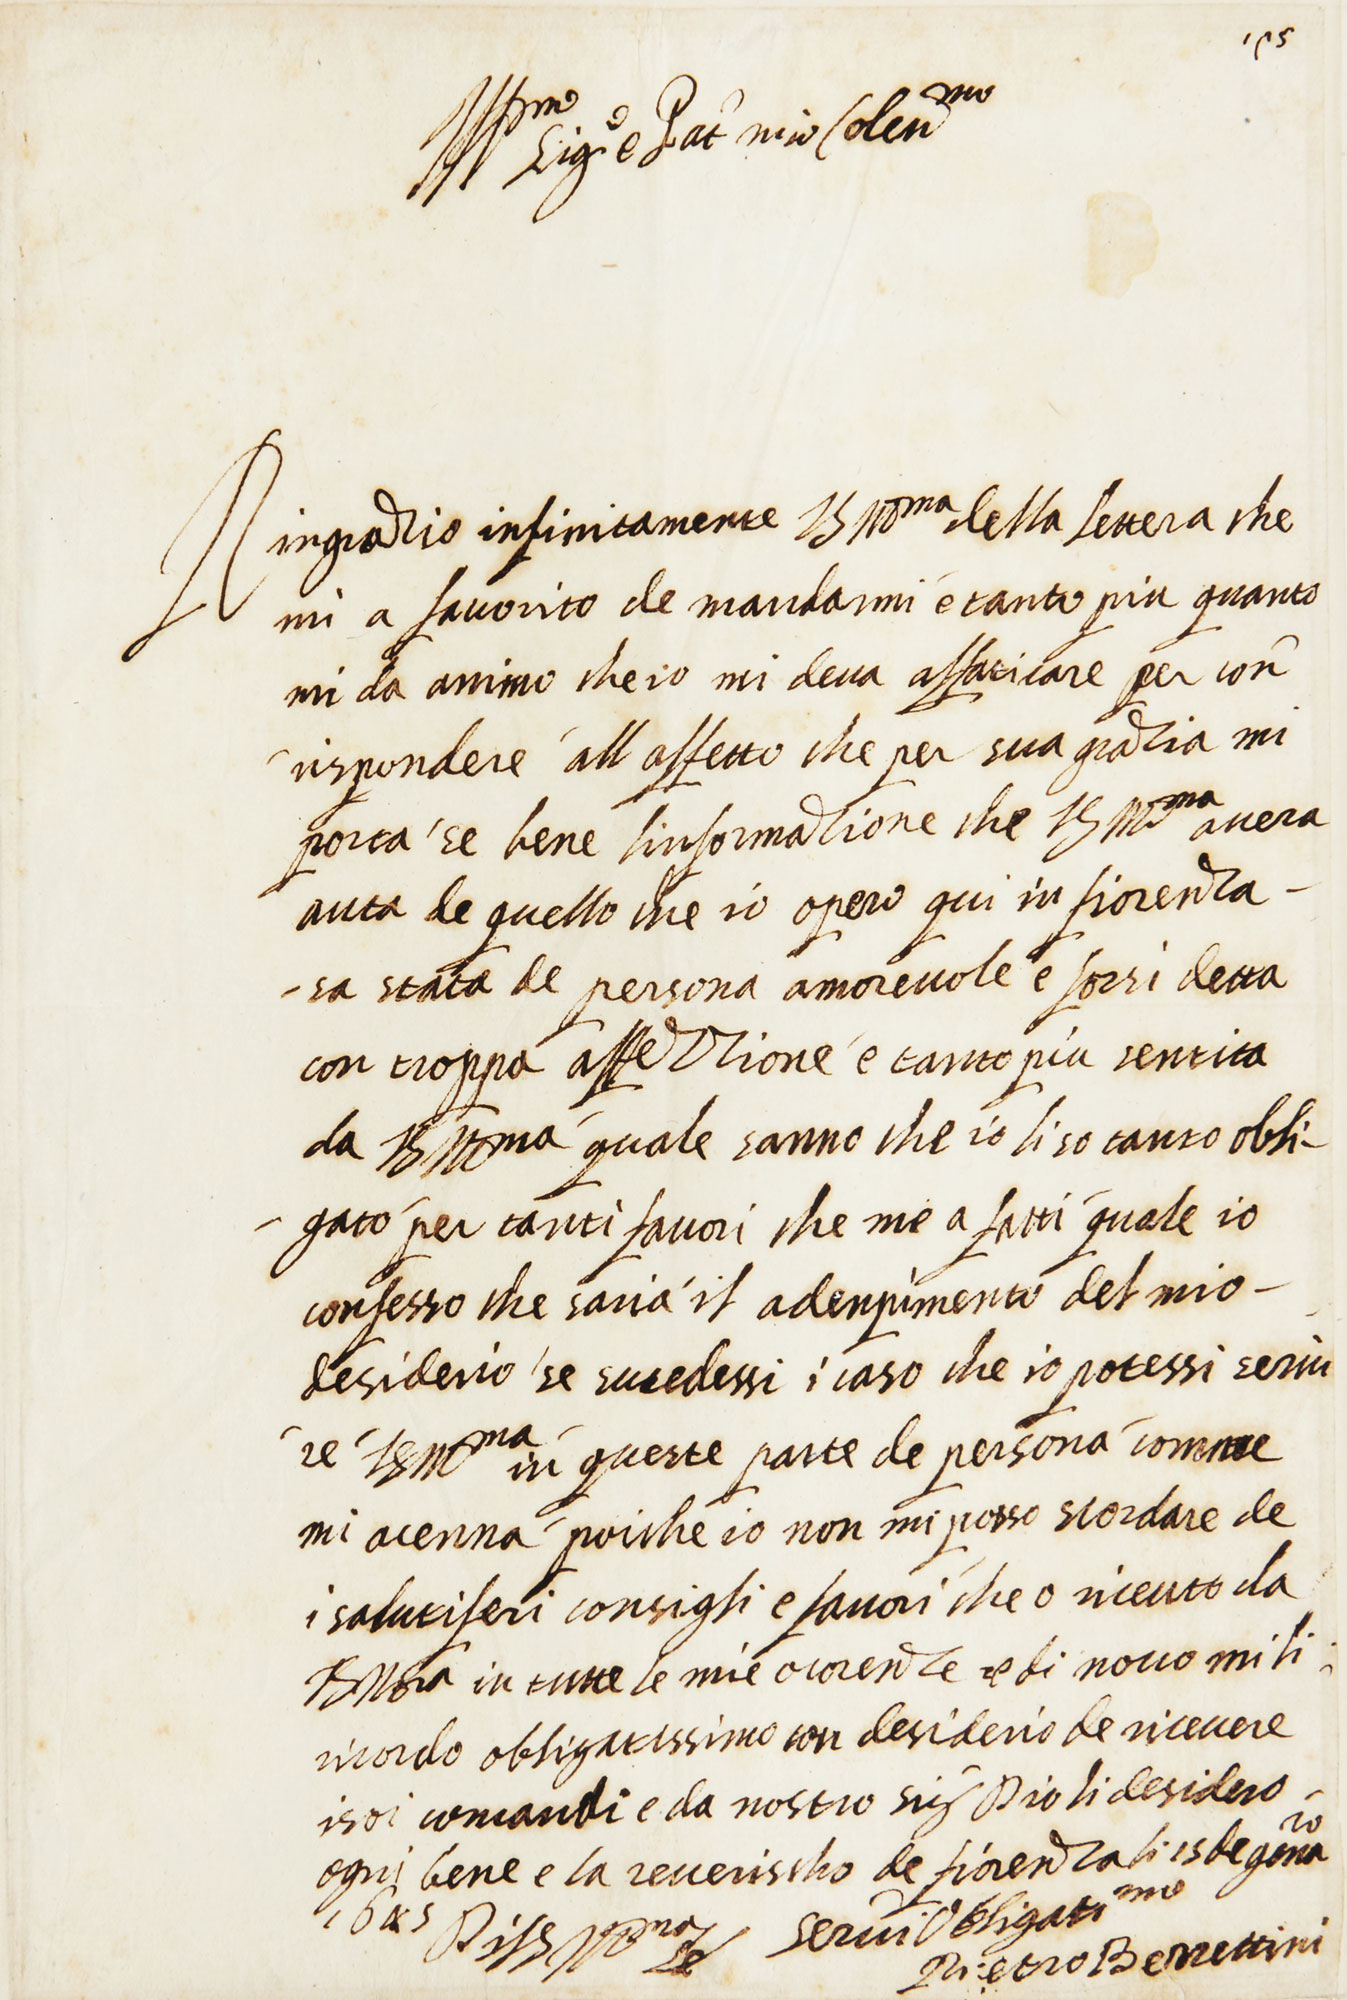 195
Ill^mo Sig^e e Pat mio Colen^mo
Ringrazio infinitamente VS Ill^ma della lettera che
mi a favorito de mandarmi e tanto piu quanto
mi da animo che io mi deva affaticare per cor
rispondere all affetto che per sua grazia mi
porta se bene linformazione che VS Ill^ma avera
auta de quello che io opero qui in fiorenza -
- sa stata de persona amorevole e forsi detta
con troppa affezzione e tanto piu sentita
da VS Ill^ma quale sanno che io li so tanto obli-
- gato per tanti favori che me a fatti quale io
confesso che saria il adenpimento del mio -
desiderio se sucedessi i caso che io potessi servi
re VS Ill^ma in queste parte de persona comme
mi acenna poiche io non mi posso scordare de
i salutiferi consigli e favori che o riceuto da
VS Ill^ma in tutte le mie ocorenze e di novo mi li
ricordo obligatissimo con desiderio de ricevere
i soi comandi e da nostro sig Dio li desidero
ogni bene e la reverischo de fiorenza li 15 de genaro
1645 Di VS Ill^ma
Servi Obligati^mo
Pietro Berrettini